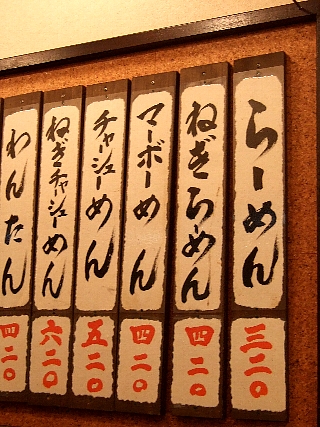 らーめん
三二〇
ねぎらーめん
四二〇
マーボーめん
四二〇
チャーシューめん
五二〇
ねぎチャーシューめん
六二〇
わんたん
四二〇